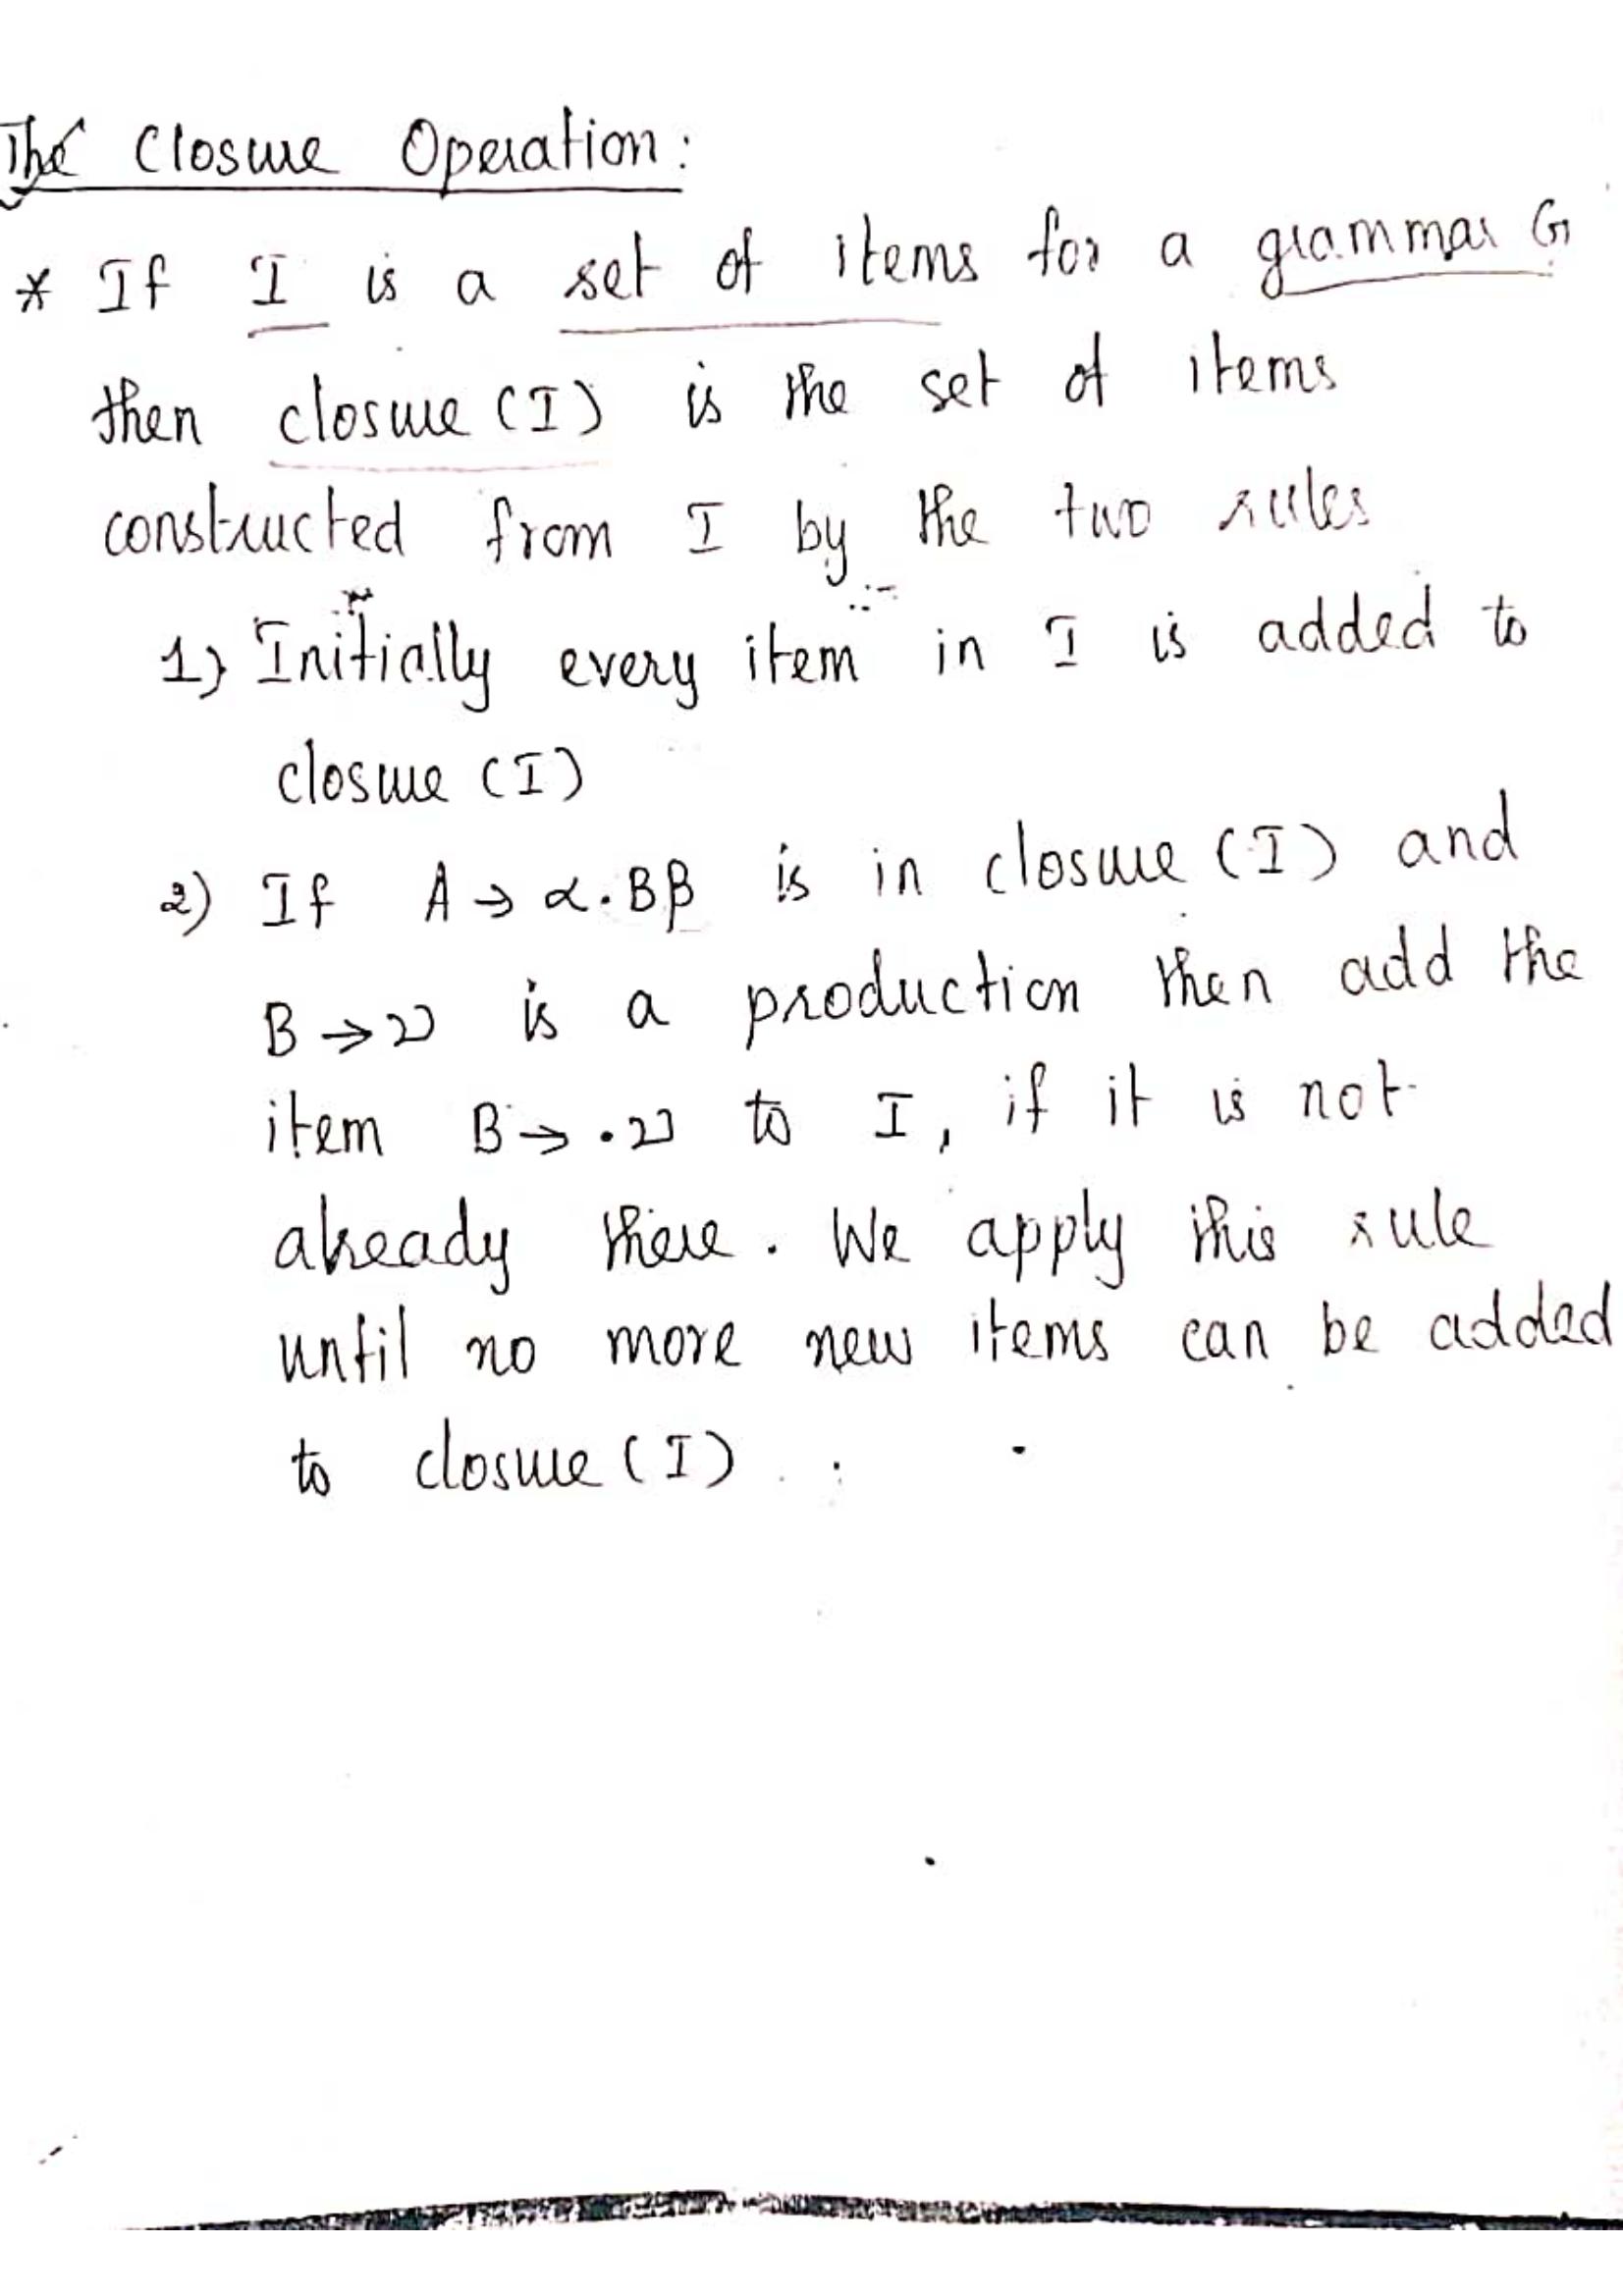 The Closure Operation:
* If I is a set of items for a grammar G
then closure (I) is the set of items
constructed from I by the two rules
1) Initially every item in I is added to
closure (I)
2) If A → α.Bβ is in closure (I) and
B → ν is a production then add the
item B → .ν to I, if it is not
already there. We apply this rule
until no more new items can be added
to closure (I).